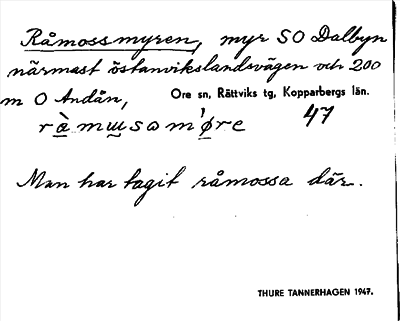 Råmossmyren, myr SO Dalbyn
närmast östanvikslandsvägen och 200
m O Andån, Ore sn, Rättviks tg, Kopparbergs län.
47
Man har tagit råmossa där.
THURE TANNERHAGEN 1947.